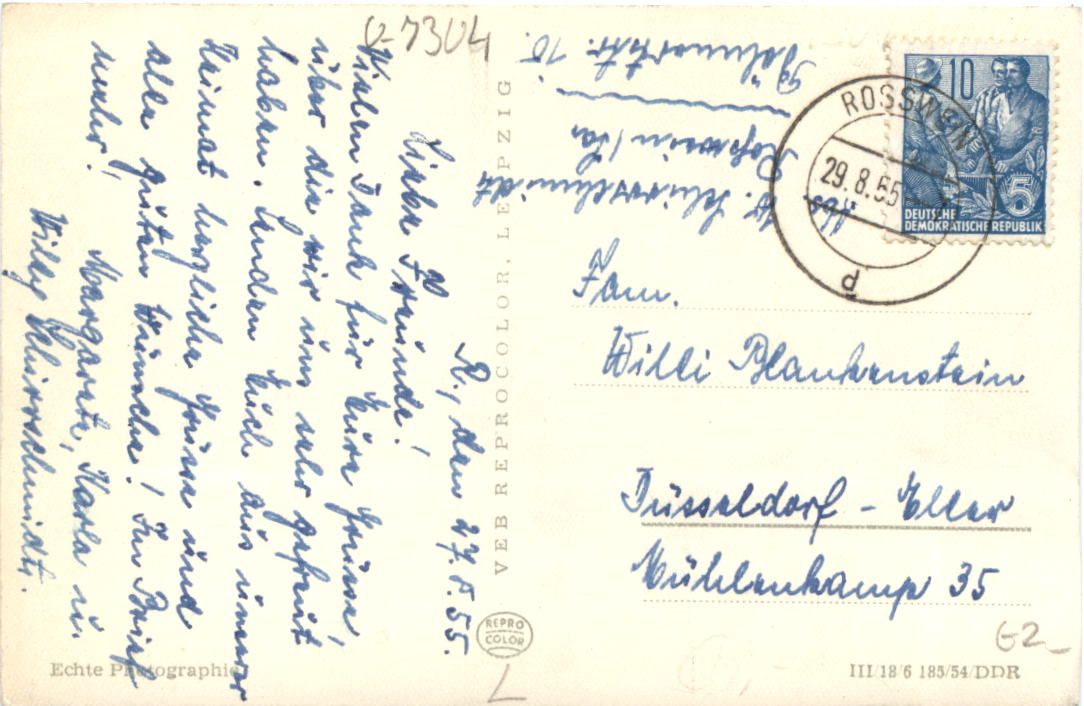 O-7304
R., den 27.8.55.
Liebe Freunde!
Vielen Dank für Eure Grüsse,
über die wir uns sehr gefreut
haben. Senden Euch aus unserer
Heimat herzliche Grüsse und
alle guten Wünsche! Im Brief
mehr!
Margarete, Karla u.
Willy Schirrschmidt.
VEB REPROCOLOR, LEIPZIG
REPRO
COLOR
W. Schirrschmidt
Rosswein/Sa
15.
10
5
DEUTSCHE
DEMOKRATISCHE REPUBLIK
ROSSWEIN
29.8.55
d
Fam.
Willi Blankenstein
Düsseldorf - Eller
Mühlenkamp 35
G2
Echte Photographie
III/18/6 185/54/DDR